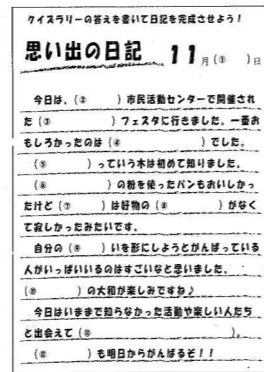 クイズラリーの答えを書いて日記を完成させよう！
思い出の日記 11月(① )日
今日は、(② )市民活動センターで開催され
た(③ )フェスタに行きました。一番お
もしろかったのは(④ )でした。
(⑤ )っていう本は初めて知りました。
(⑥ )の粉を使ったパンもおいしかっ
たけど(⑦ )は好物の(⑧ )がなく
て寂しかったみたいです。
自分の(⑨ )いを形にしようとがんばっている
人がいっぱいいるのはすごいなと思いました。
(⑩ )の大和が楽しみですね♪
今日はいままで知らなかった活動や楽しい人たち
と出会えて(⑪ )。
(⑫ )も明日からがんばるぞ！！